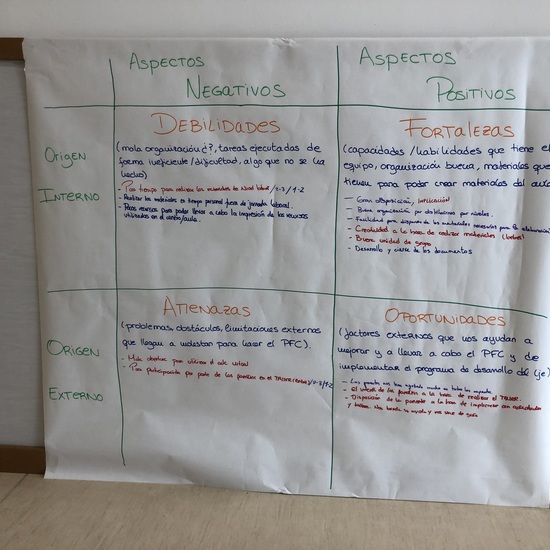 Aspectos
Negativos
Aspectos
Positivos
Origen
Interno
Debilidades
(mala organización ¿?, tareas ejecutadas de
forma ineficiente / dificultad, algo que no se ha
hecho)
- Poco tiempo para realizar los materiales de
- Realizar los materiales en tiempo personal fuera de jornada laboral.
- Pocos recursos para poder llevar a cabo la impresión de los recursos
utilizados en el centro/aula.
Fortalezas
(capacidades / habilidades que tiene el
equipo, organización buena, materiales que
tienen para poder crear materiales del aula
- Gran disposición,
- Buena organización por niveles.
- Facilidad para disponer de los materiales necesarios para la elaboración
- Creatividad a la hora de realizar materiales
- Buena unidad de grupo
- Desarrollo y cierre de los documentos
Origen
Externo
Amenazas
(problemas, obstáculos, limitaciones externas
que llegan a molestar para hacer el PFC).
- para utilizar el aula virtual
- Poca participación por parte de las familias en el
Oportunidades
(factores externos que nos ayudan a
mejorar y a llevar a cabo el PFC y de
implementar el programa de desarrollo del
- Las familias nos han ayudado mucho en todos los aspectos
- El interés de las familias a la hora de realizar el
- Disposición de las familias a la hora de